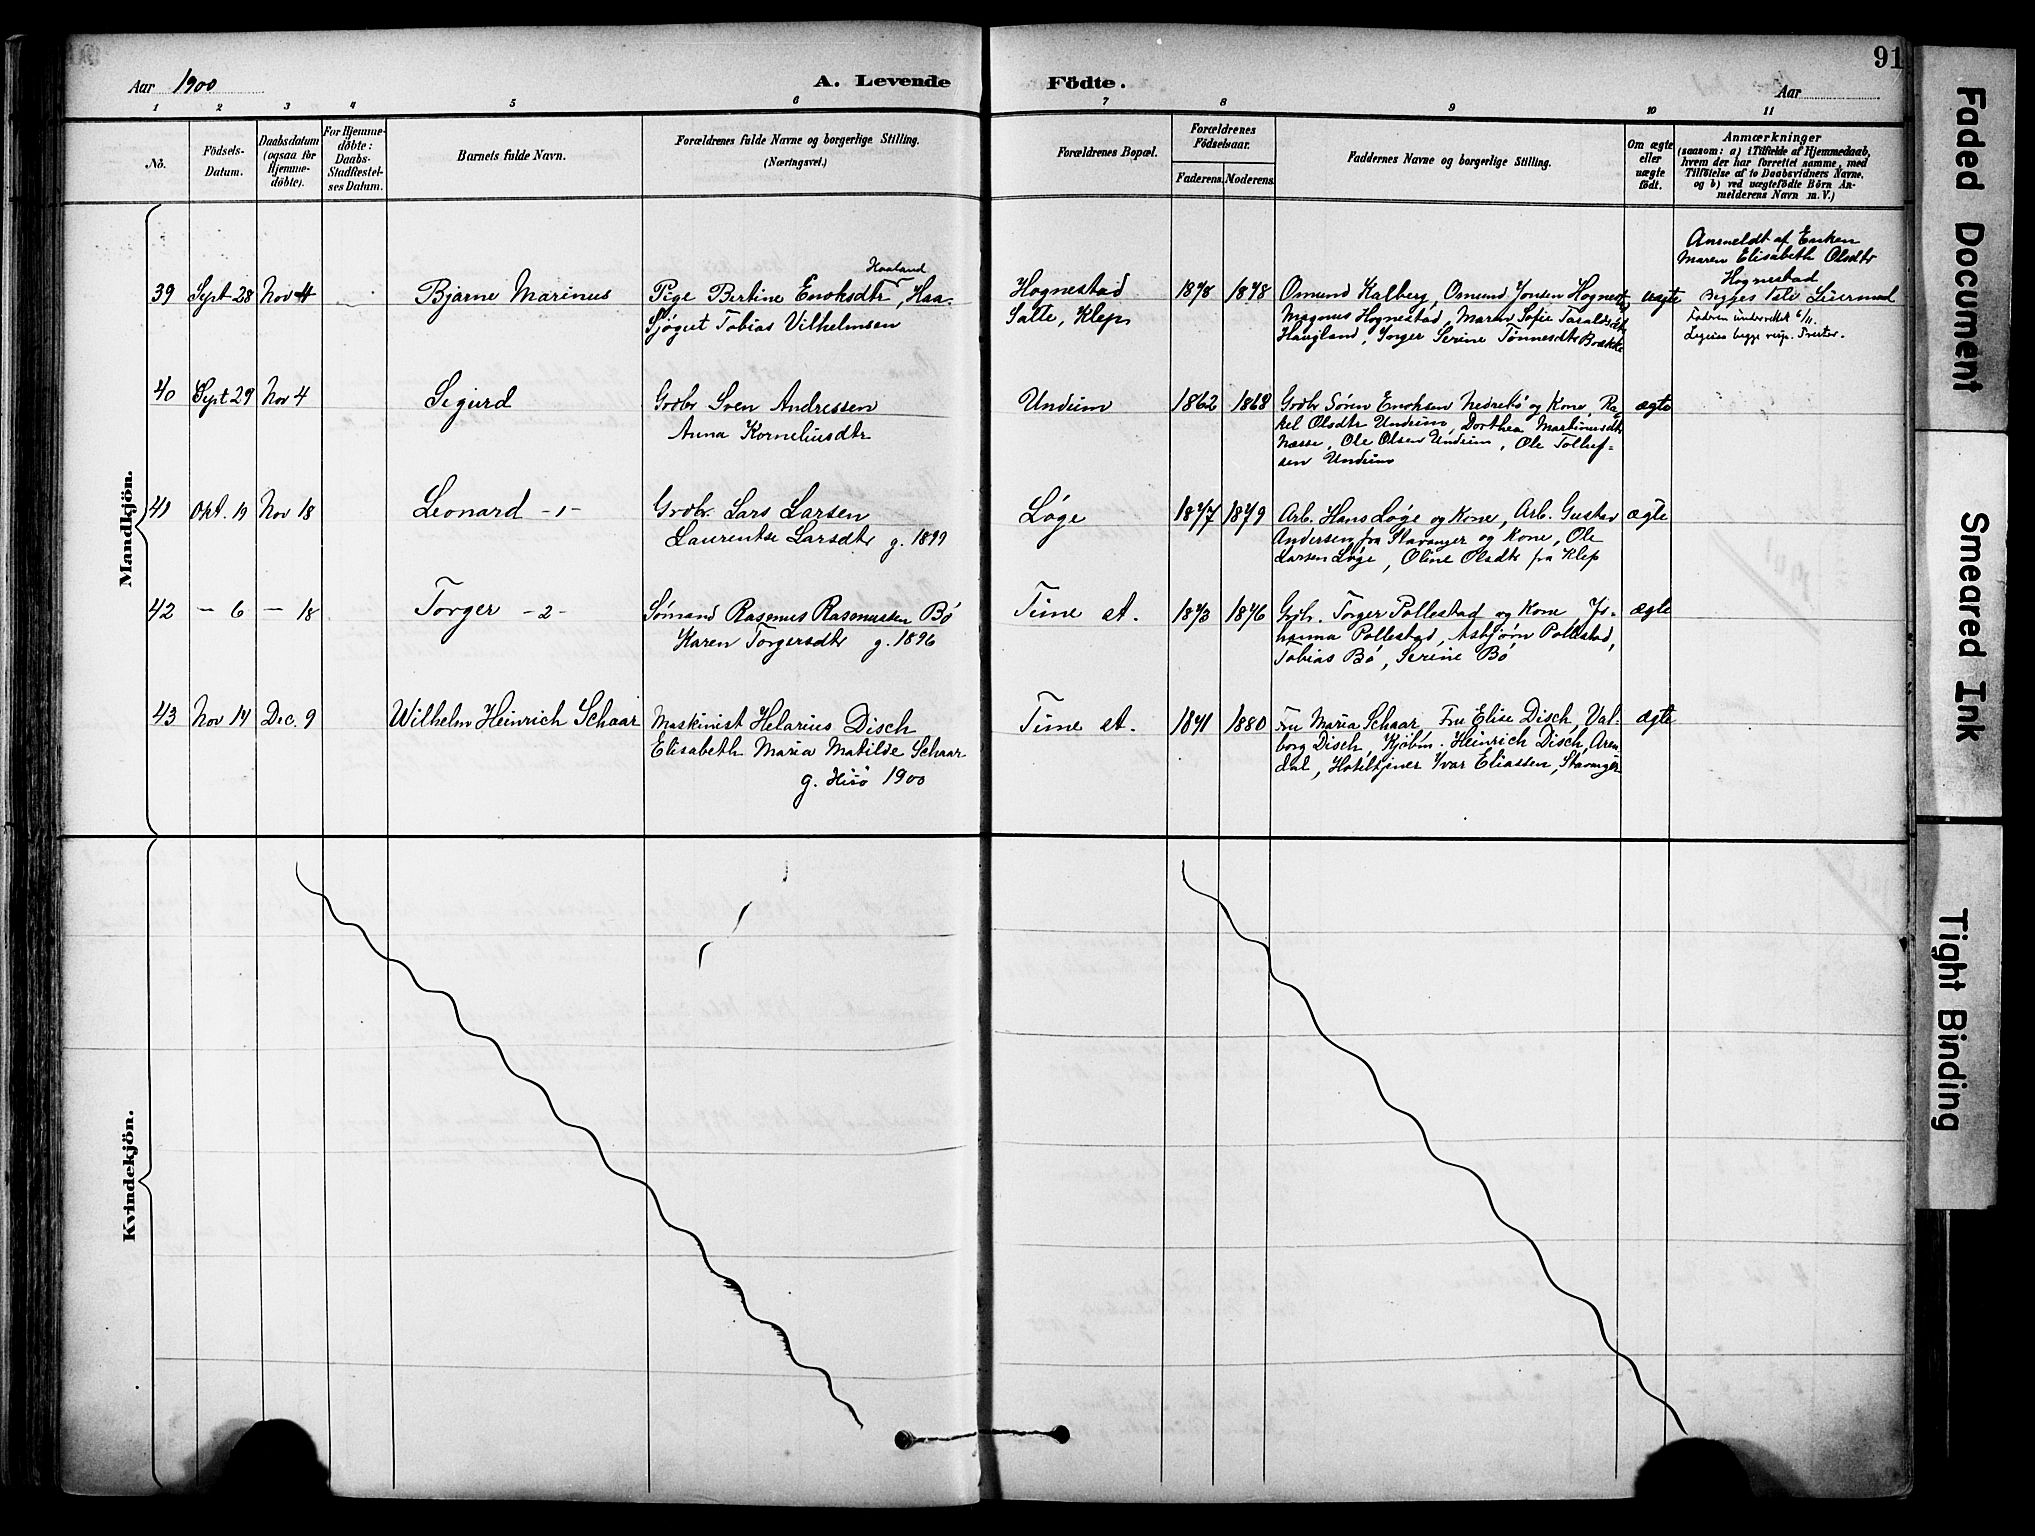 Aar 1900
A. Levende Födte.
Aar
91
1 2 3 4 5 6 7 8 9 10 11
No.
Födsels-Datum.
Daabsdatum (ogsaa for Hjemme-döbte).
For Hjemme-döbte: Daabs-Stadfestel-ses Datum.
Barnets fulde Navn.
Forældrenes fulde Navne og borgerlige Stilling. (Næringsvei.)
Forældrenes Bopæl.
Forældrenes Födselsaar.
Faderens. Moderens.
Faddernes Navne og borgerlige Stilling.
Om ægte eller uægte födt.
Anmærkninger
(saasom: a) i Tilfælde af Hjemmedaab,
hvem der har forrettet samme, med
Tilföielse af to Daabsvidners Navne,
og b) ved uægtefödte Börn An-
melderens Navn m. V.)
Mandkjön.
39 Sept 28 Nov 4 Bjarne Marinus
Haaland
Pige Bertine Enoksdtr, Haa-
Tobias Vilhelmsen
Hognestad
Salte, Klep
1878 1878
Osmund Kalberg, Osmund Jonsen
Magnus Hognestad, Maren Sofie
Haugland, Serine Tønnesdtr
uægte
Anmeldt af Enken
Maren Elisabeth Olsdtr
Hognestad
Begges
Faderen underrettet 6/11.
40 Sept 29 Nov 4 Sigurd
Grdbr Sven Andressen
Anna Korneliusdtr
Undeim
1862 1868
Grdbr Søren Enoksen Nedrebø og Kone, Ra-
kel Olsdtr Undeim, Dorthea Martinusdtr
Næsse, Ole Olsen Undeim, Ole Tollef-
sen Undeim
ægte
41 Okt. 19 Nov 18 Leonard -1-
Grdbr. Lars Larsen
Laurentse Larsdtr g. 1899
Løge
1877 1879
Arb. Hans Løge og Kone, Arb. Gustav
Andersen fra Stavanger og Kone, Ole
Larsen Løge, Oline Olsdtr fra Klep
ægte
42 - 6 - 18 Torger -2-
Sømand Rasmus Rasmussen Bø
Karen Torgersdtr g. 1896
Time st.
1873 1876
Grdb. Torger Pollestad og Kone Jo-
hanna Pollestad, Asbjørn Pollestad,
Tobias Bø, Serine Bø
ægte
43 Nov 14 Dec. 9 Wilhelm Heinrich Schaar
Maskinist Helarius Disch
Elisabeth Maria Matilde Schaar
g. Hisø 1900
Time st.
1871 1880
Fru Maria Schaar Fru Elise Disch, Val-
borg Disch, Kjøbm. Heinrich Disch, Aren-
dal, Hoteltjener Yvar Eliassen, Stavanger
ægte
Kvindekjön.
Faded Document
Smeared Ink
Tight Binding